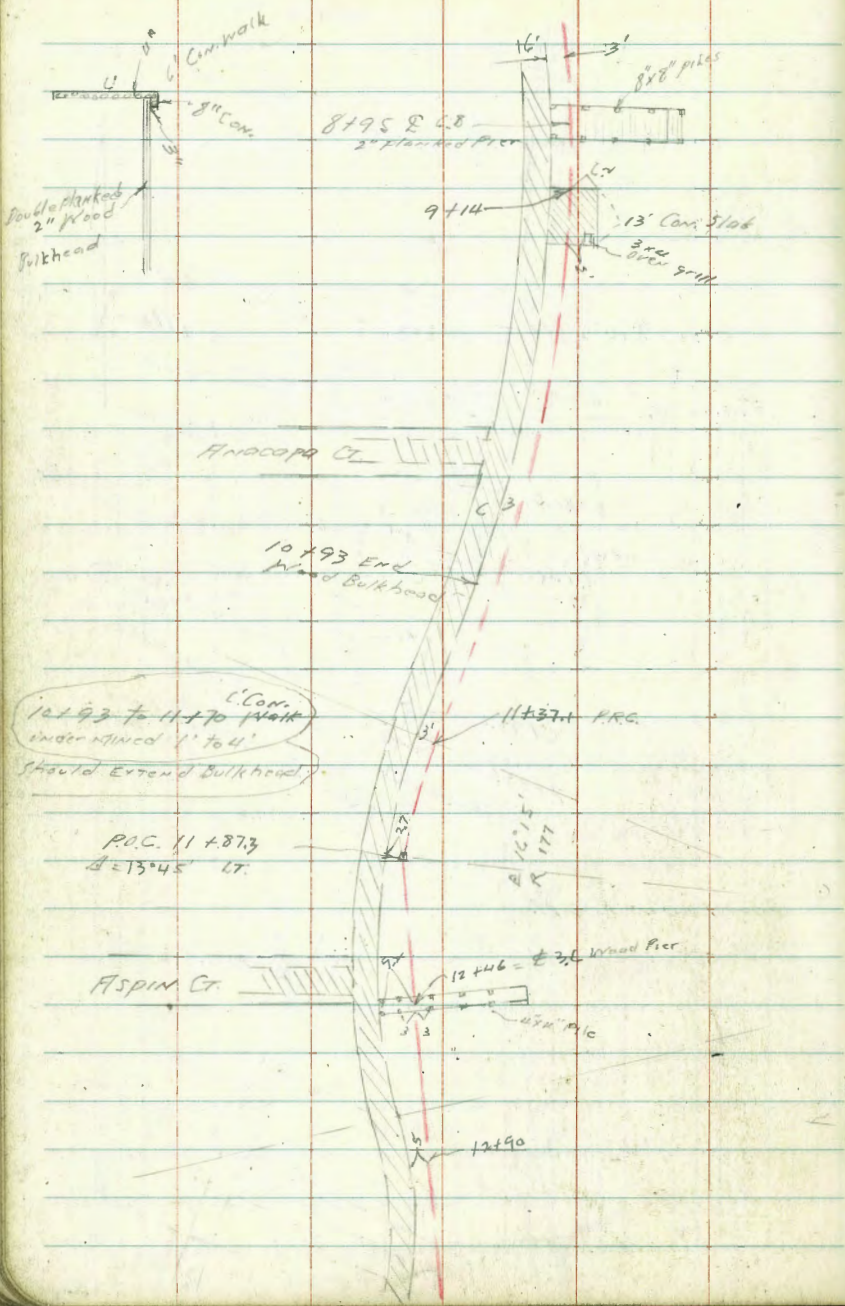 6' Con. Walk
8" Con.
3"
Double planked
2" Wood
Bulkhead
16'
3'
8"x8" piles
8+95 ℄
2" Planked Pier
9+14
13' Con. Slab
over grill
Anacapa Ct.
3
10+93 End
Wood Bulkhead
10+93 to 11+70 Walk
undermined 1' to 4'
Should Extend Bulkhead
3'
11+37.1 P.R.C.
P.O.C. 11+87.3
Δ=13°45' LT.
2.7
Δ 16°15'
R 177
Aspin Ct.
12+46 = ℄ Wood Pier
4"x4" Pile
3 3
5
12+90